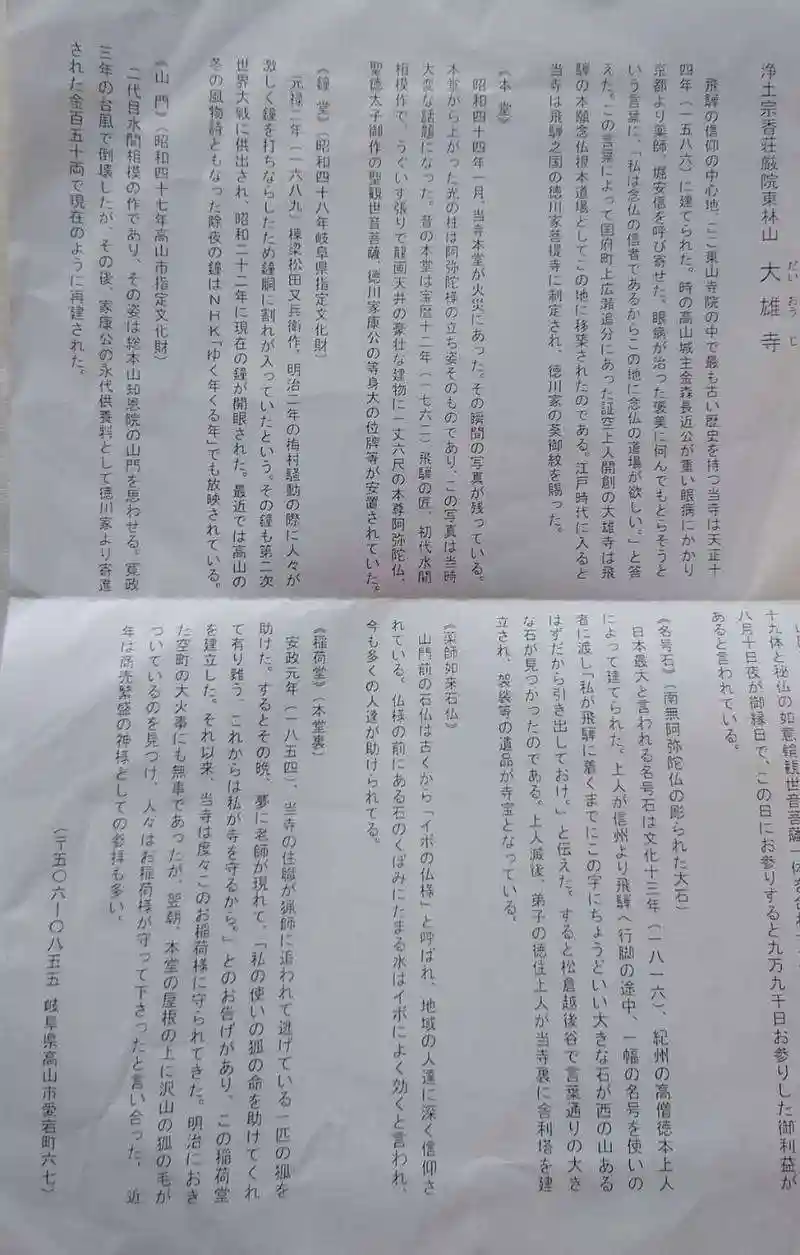 浄土宗香荘厳院東林山 大雄寺
だい おう じ
飛騨の信仰の中心地、ここ東山寺院の中で最も古い歴史を持つ当寺は天正十
四年(一五八六)に建てられた。時の高山城主金森長近公が重い眼病にかかり
京都より薬師、堀安信を呼び寄せた。眼病が治った褒美に何んでもとらそうと
いう言葉に、「私は念仏の信者であるからこの地に念仏の道場が欲しい。」と答
えた。この言葉によって国府町上広瀬追分にあった証空上人開創の大雄寺は飛
騨の本願念仏根本道場としてこの地に移築されたのである。江戸時代に入ると
当寺は飛騨之国の徳川家菩提寺に制定され、徳川家の葵御紋を賜った。
《本堂》
昭和四十四年一月、当寺本堂が火災にあった。その瞬間の写真が残っている。
本堂から上がった光の柱は阿弥陀様の立ち姿そのものであり、この写真は当時
大変な話題になった。昔の本堂は宝暦十二年(一七六二)飛騨の匠、初代水間
相模作で、うぐいす張りで龍画天井の豪壮な建物に一丈六尺の本尊阿弥陀仏、
聖徳太子御作の聖観世音菩薩、徳川家康公の等身大の位牌等が安置されていた。
《鐘堂》(昭和四十八年岐阜県指定文化財)
元禄二年(一六八九)棟梁松田又兵衛作。明治二年の梅村騒動の際に人々が
激しく鐘を打ちならしたため鐘胴に割れが入っていたという。その鐘も第二次
世界大戦に供出され、昭和二十二年に現在の鐘が開眼された。最近では高山の
冬の風物詩ともなった除夜の鐘はNHK「ゆく年くる年」でも放映されている。
《山門》(昭和四十七年高山市指定文化財)
二代目水間相模の作であり、その姿は総本山知恩院の山門を思わせる。寛政
三年の台風で倒壊したが、その後、家康公の永代供養料として徳川家より寄進
された金百五十両で現在のように再建された。
十九体と秘仏の如意輪観世音菩薩一体を合わ
八月十日夜が御縁日で、この日にお参りすると九万九千日お参りした御利益が
あると言われている。
《名号石》(南無阿弥陀仏の彫られた大石)
日本最大と言われる名号石は文化十三年(一八一六)、紀州の高僧徳本上人
によって建てられた。上人が信州より飛騨へ行脚の途中、一幅の名号を使いの
者に渡し「私が飛騨に着くまでにこの字にちょうどいい大きな石が西の山ある
はずだから引き出しておけ。」と伝えた。すると松倉越後谷で言葉通りの大き
な石が見つかったのである。上人滅後、弟子の徳住上人が当寺裏に舎利塔を建
立され、袈裟等の遺品が寺宝となっている。
《薬師如来石仏》
山門前の石仏は古くから「イボの仏様」と呼ばれ、地域の人達に深く信仰さ
れている。仏様の前にある石のくぼみにたまる水はイボによく効くと言われ、
今も多くの人達が助けられてる。
《稲荷堂》(本堂裏)
安政元年(一八五四)、当寺の住職が猟師に追われて逃げている一匹の狐を
助けた。するとその晩、夢に老師が現れて、「私の使いの狐の命を助けてくれ
て有り難う、これからは私が寺を守るから。」とのお告げがあり、この稲荷堂
を建立した。それ以来、当寺は度々このお稲荷様に守られてきた。明治におき
た空町の大火事にも無事であったが、翌朝、本堂の屋根の上に沢山の狐の毛が
ついているのを見つけ、人々はお稲荷様が守って下さったと言い合った。近
年は商売繁盛の神様としての参拝も多い。
(〒五〇六―〇八五五 岐阜県高山市愛宕町六七)